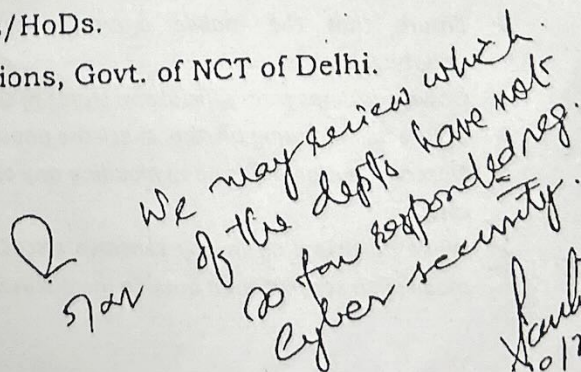 /HoDs.
ions, Govt. of NCT of Delhi.
We may review which
of the depts have not
so far responded reg.
Cyber security.